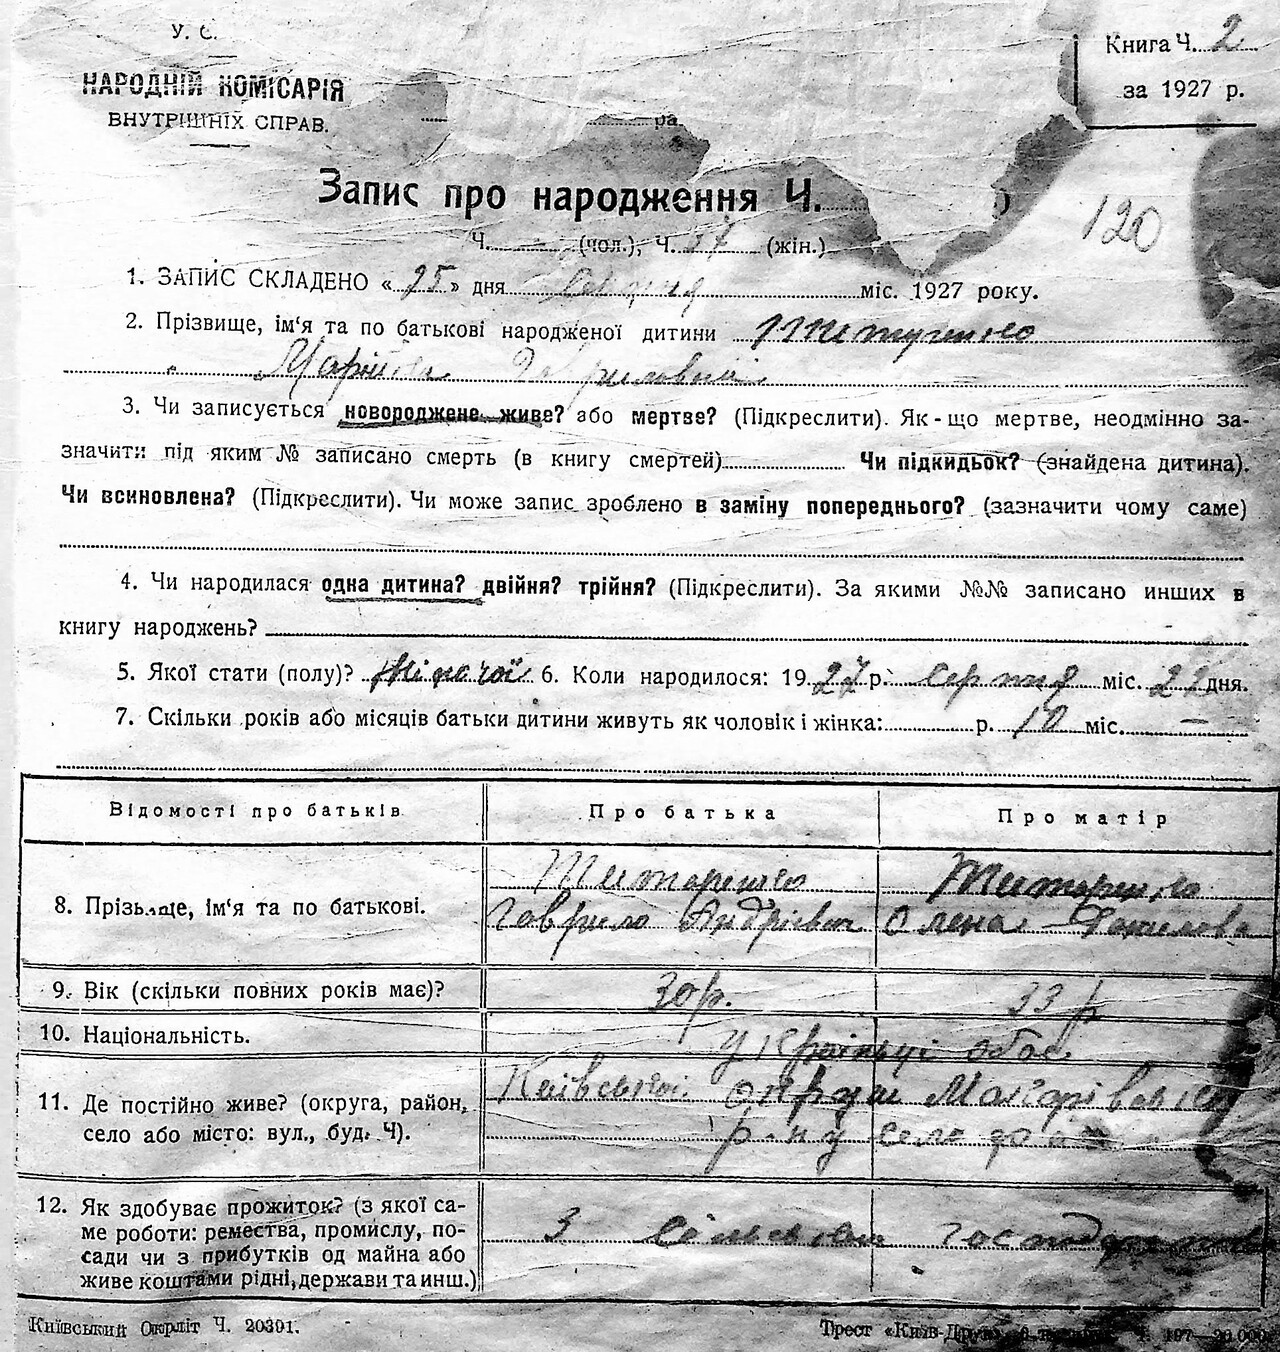 У. С.
НАРОДНІЙ КОМІСАРІЯ
ВНУТРІШНІХ СПРАВ.
Книга Ч. 2
за 1927 р.
ра
Запис про народження Ч.
120
Ч. (чол.), Ч. 57 (жін.)
1. ЗАПИС СКЛАДЕНО « 25 » дня Серпня міс. 1927 року.
2. Прізвище, ім'я та по батькові народженої дитини
Марійка Гавриловна
3. Чи записується новороджене живе? або мертве? (Підкреслити). Як-що мертве, неодмінно за-
значити під яким № записано смерть (в книгу смертей) Чи підкидьок? (знайдена дитина).
Чи всиновлена? (Підкреслити). Чи може запис зроблено в заміну попереднього? (зазначити чому саме)
4. Чи народилася одна дитина? двійня? трійня? (Підкреслити). За якими №№ записано инших в
книгу народжень?
5. Якої стати (полу)? Жіночої 6. Коли народилося: 1927 р. серпня міс. 22 дня.
7. Скільки років або місяців батьки дитини живуть як чоловік і жінка: р. 10 міс. —
Відомості про батьків Про батька Про матір
Титаренко Титаренко
8. Прізвище, ім'я та по батькові. Гаврило Андрієвич Олена Данилова
9. Вік (скільки повних років має)? 30 р. 33 р
10. Національність. Українці обоє
11. Де постійно живе? (округа, район, Київської округи Макарівськ
село або місто: вул., буд. Ч). р-ну село
12. Як здобуває прожиток? (з якої са-
ме роботи: ремества, промислу, по- З сільського господарства
сади чи з прибутків од майна або
живе коштами рідні, держави та инш.)
Київський Окрліт Ч. 20391.
Трест «Київ-Друк» 197—20.000